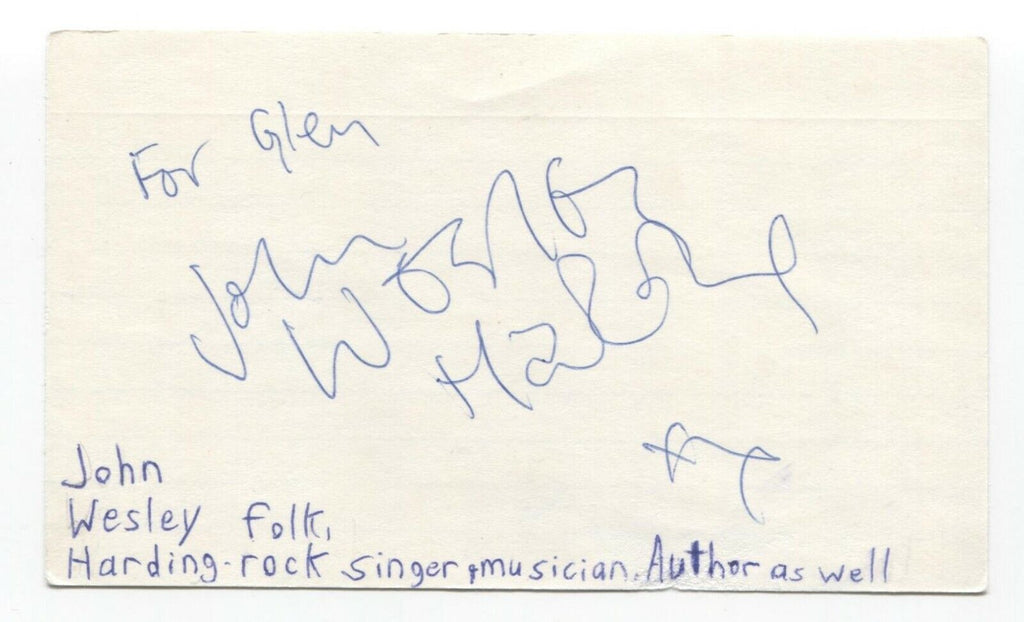 For Glen
John Wesley
Harding
John
Wesley folk,
Harding-rock singer, musician. Author as well